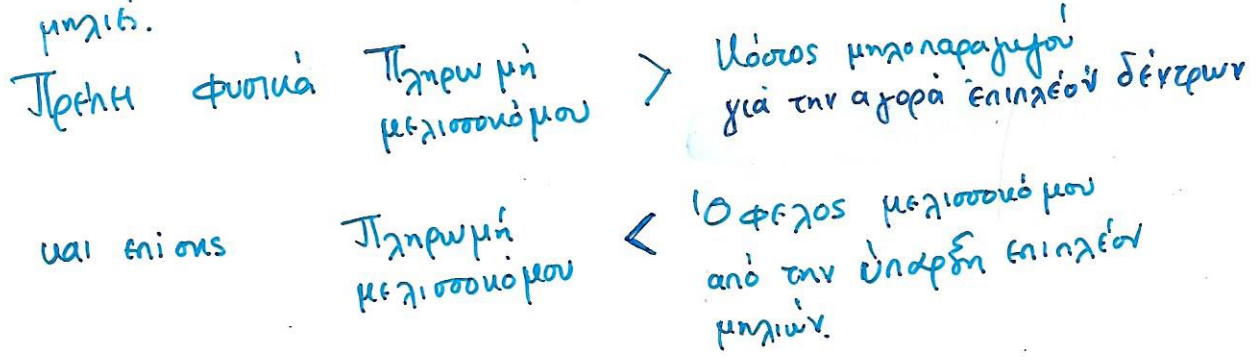 μηλιές.
Πρέπει φυσικά Πληρωμή μελισσοκόμου > Κόστος μηλοπαραγωγού για την αγορά επιπλέον δέντρων
και επίσης Πληρωμή μελισσοκόμου < Όφελος μελισσοκόμου από την ύπαρξη επιπλέον μηλιών.